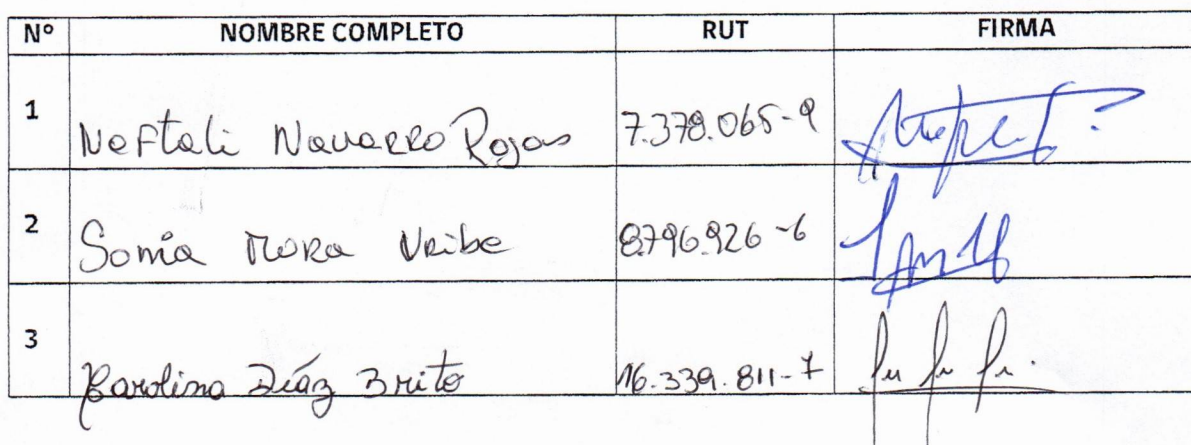 Nº NOMBRE COMPLETO RUT FIRMA
1 Neftali Navarro Rojas 7.378.065-9
2 Sonia Mora Uribe 8.796.926-6
3 Carolina Díaz Brito 16.339.811-7